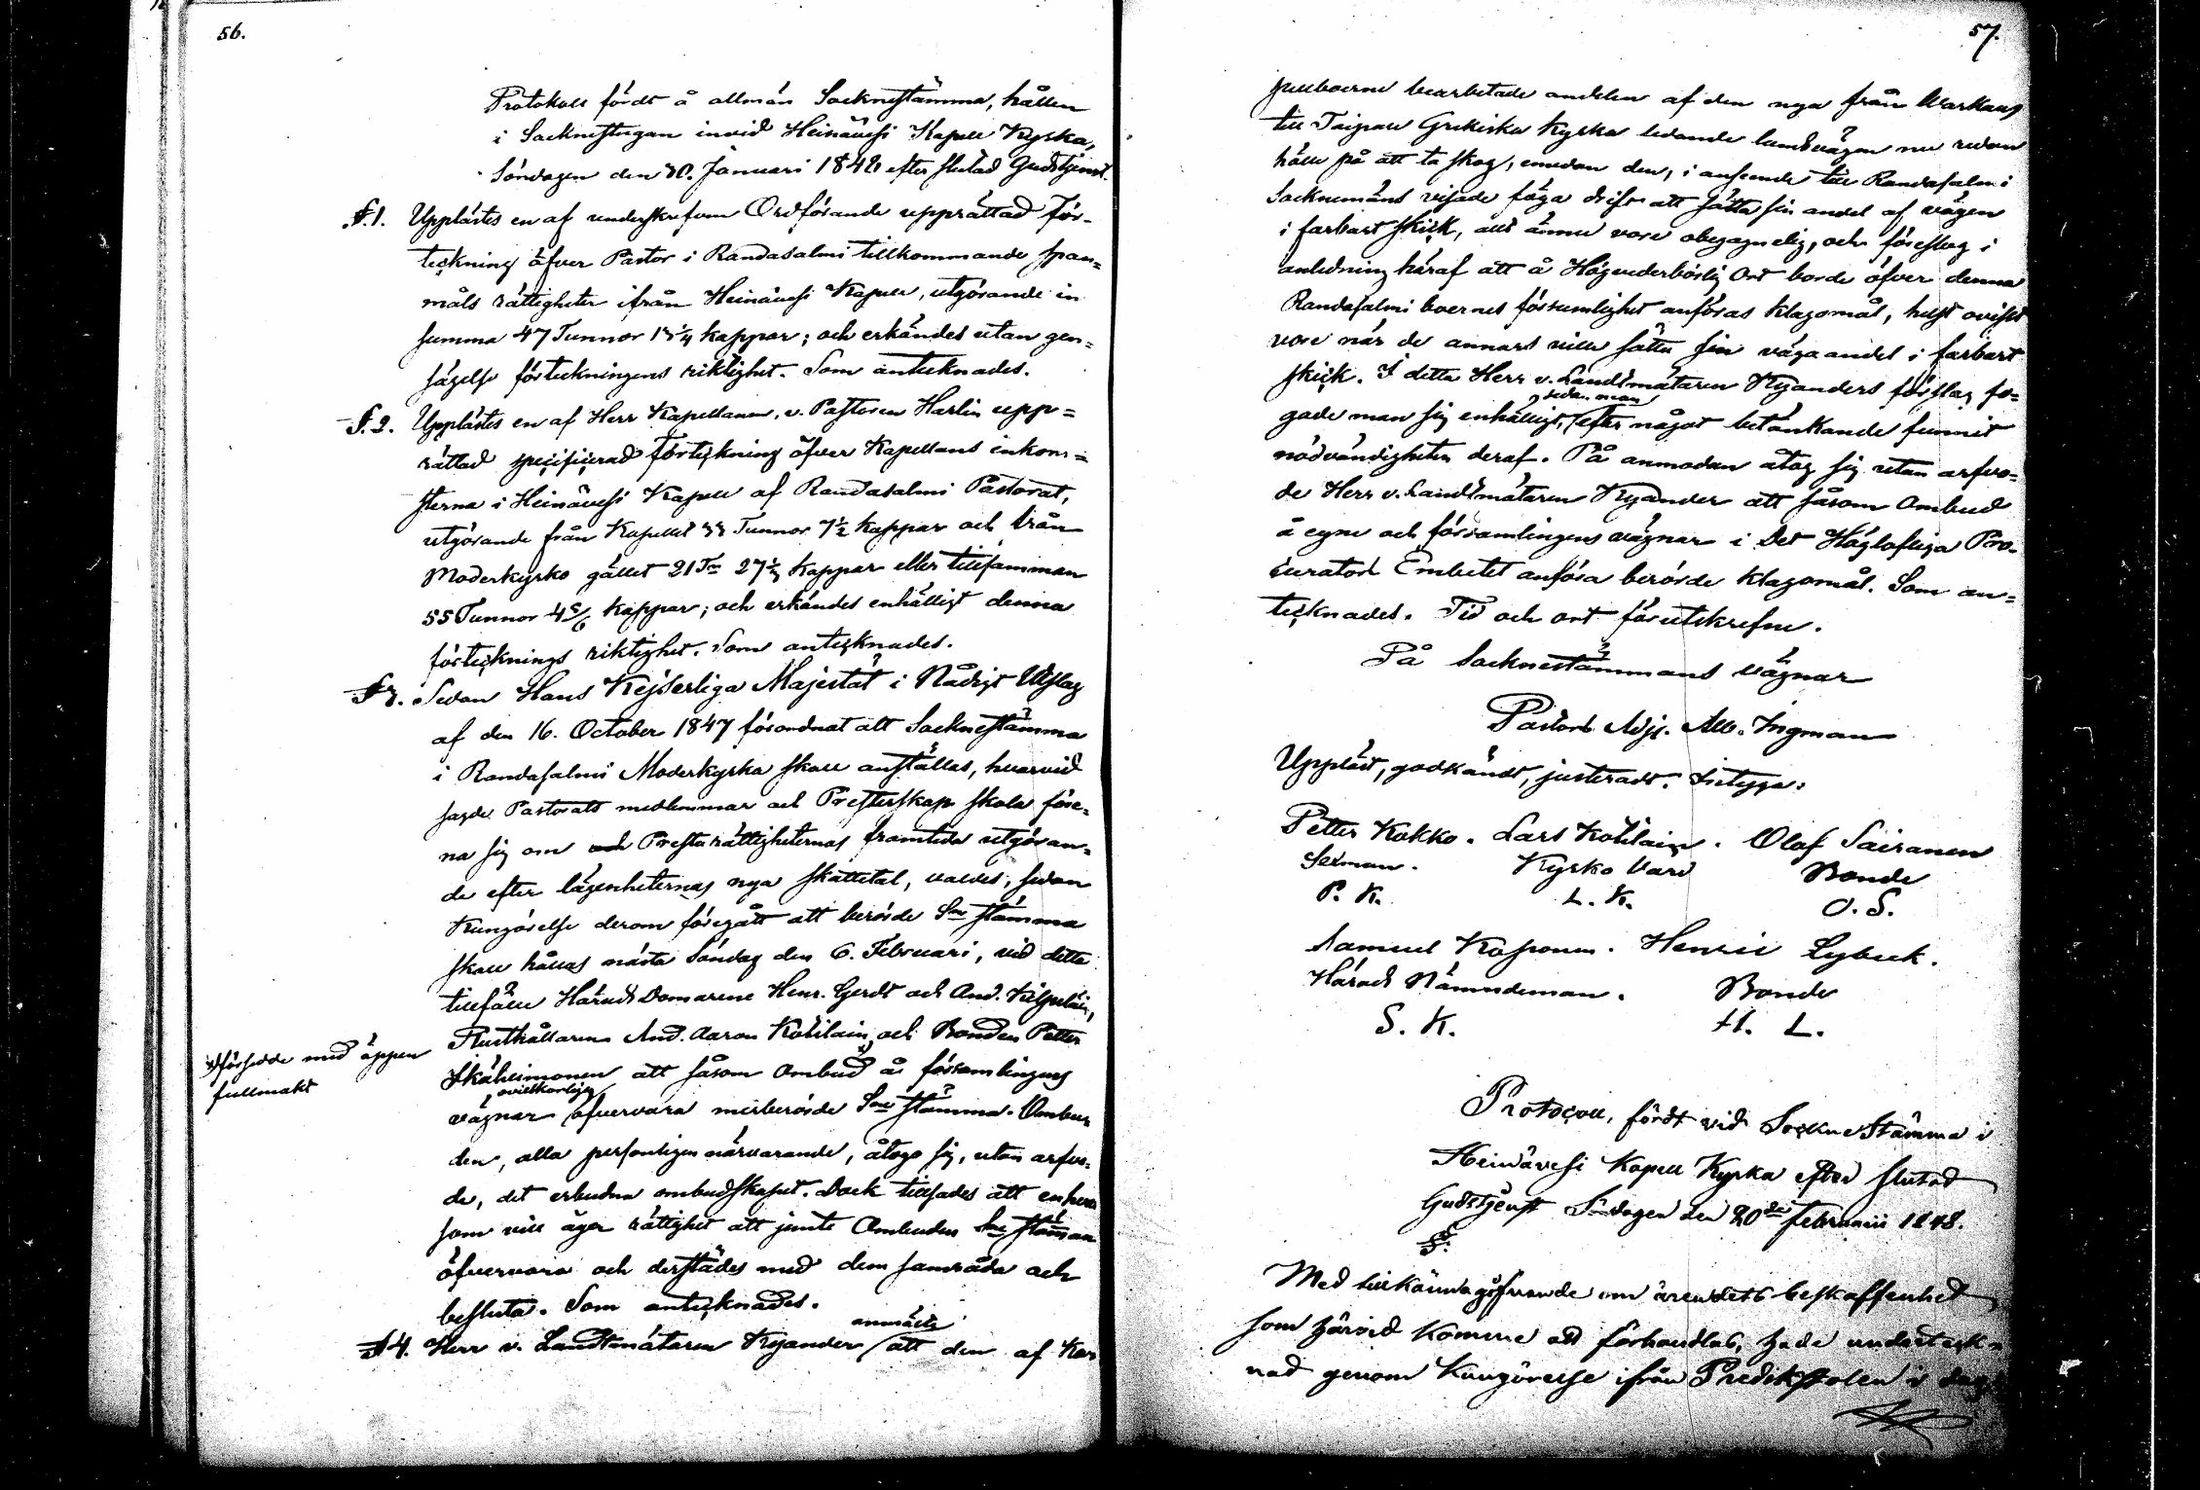 56.
Protokoll fördt å allmän Socknestämma, hållen
i Sockenstugan invid Heinävesi Kapell Kyrka,
Söndagen den 30. Januari 1848 efter slutad Gudstjenst.
§.1. Upplästes en af underskrefven Ordförande upprättad För-
teckning öfver Pastor i Randasalmi tillkommande span=
måls rättigheter ifrån Heinävesi Kapell, utgörande in
summa 47 Tunnor kappar; och erkändes utan gen=
sägelse förteckningens riktighet. Som antecknades.
§.2. Upplästes en af Herr Kapellanen, v. Pastoren Harlin upp=
rättad specificerad förteckning öfver Kapellans inkom=
sterna i Heinävesi Kapell af Randasalmi Pastorat,
utgörande från Kapellet 33 Tunnor 7½ kappar och från
Moderkyrko gället 21 Tr kappar eller tillsamman
55 Tunnor 4 5/6 kappar; och erkändes enhälligt denna
förtecknings riktighet. Som antecknades.
§3. Sedan Hans Kejserliga Majestät i Nådigt Utslag
af den 16. October 1847 förordnat att Socknestämma
i Randasalmi Moderkyrka skall anställas, hvarvid
sagde Pastorats medlemmar och Presterskap skola före-
na sig om och Prestarättigheternas framtida utgöran=
de efter lägenheternas nya skattetal, valdes, sedan
Kungörelse derom föregått att berörde Sne stämma
skall hållas nästa Söndag den 6. Februari, vid detta
tillfälle Härads Domarene Henr. Gerdt och And. Kilpeläin,
Rusthållaren And. Aaron Kotilain och Bonden Petter
x) försedde med öppen
fullmakt
Ikäheimonen att såsom Ombud å församlingens
ovillkorligen
vägnar öfvervara merberörde Sne stämma. Ombu=
den, alla personligen närvarande, åtogo sig, utan arfvo=
de, det erbudna ombudskapet. Dock tillsades att enhvar
som vill äger rättighet att jemte Ombuden Sne stämman
öfvervara och derstädes med dem samråda och
besluta. Som antecknades.
anmälte
§4. Herr v. Landtmätaren Kyander att den af Ka-
57.
pellboerne bearbetade andelen af den nya från Warkaus
till Taipale Grekiska Kyrka ledande landsvägen nu redan
håller på att ta skog, emedan den, i anseende till Randasalmi
Socknemäns visade föga drift att sätta sin andel af vägen
i farbart skick, allt ännu vore obegagnelig, och föreslog i
anledning häraf att å Högvederbörlig Ort borde öfver denna
Randasalmi boernes försumlighet anföras klagomål, helst ovisst
vore när de annars ville sätta sin vägaandel i farbart
skick. I detta Herr v. Landtmätaren Kyanders förslag fo=
sedan man
gade man sig enhälligt, efter något betänkande funnit
nödvändigheten deraf. På anmodan åtog sig utan arfvo=
de Herr v. Landtmätaren Kyander att såsom Ombud
å egne och församlingens vägnar i Det Höglofliga Pro-
curators Embetet anföra berörde klagomål. Som an=
tecknades. Tid och ort förutskrefne.
På Socknestämmans vägnar
Pastors Adj. Alb. Ingman
Uppläst, godkändt, justeradt. Intyga:
Petter Kokko. Lars Kotilain. Olof Sairanen
Sexman. Kyrko Värd Bonde
P. K. L. K. O. S.
Samuel Kaponen. Henric Lybeck.
Härads Nämndeman. Bonde
S. K. H. L.
Protocoll, fördt vid Sockne Stämma i
Heinävesi Kapell Kyrka efter slutad
Gudstjenst Söndagen den 20de Februarii 1848.
§.
Med tillkännagifvande om ärendets beskaffenhet
som härvid komme att förhandlas, hade underteck=
nad genom Kungörelse ifrån Predikstolen i dag